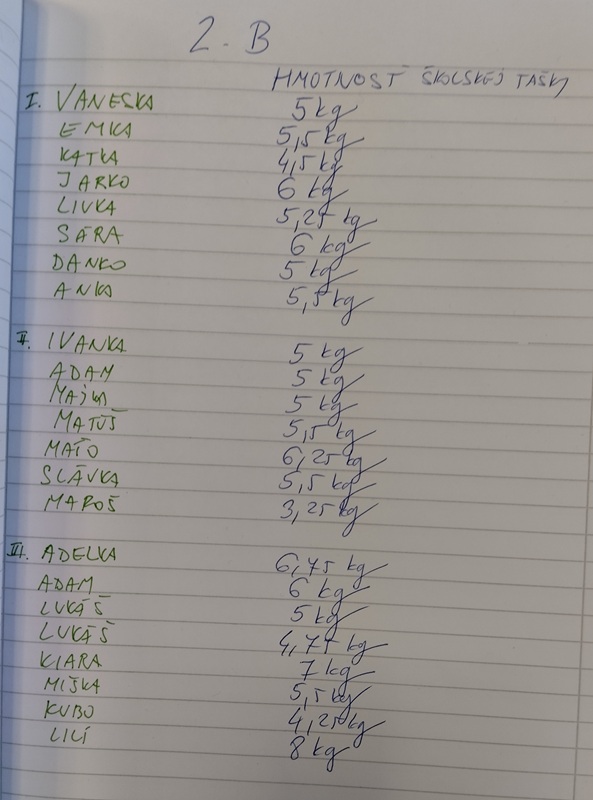 2. B
HMOTNOSŤ ŠKOLSKEJ TAŠKY
I. VANESKA 5 kg
EMKA 5,5 kg
KATKA 4,5 kg
JARKO 6 kg
LIVKA 5,25 kg
SÁRA 6 kg
DANKO 5 kg
ANKA 5,5 kg
II. IVANKA 5 kg
ADAM 5 kg
MAJKA 5 kg
MATÚŠ 5,5 kg
MAŤO 6,25 kg
SLÁVKA 5,5 kg
MAROŠ 3,25 kg
III. ADELKA 6,75 kg
ADAM 6 kg
LUKÁŠ 5 kg
LUKÁŠ 4,75 kg
KIARA 7 kg
MIŠKA 5,5 kg
KUBO 4,25 kg
LILÍ 8 kg